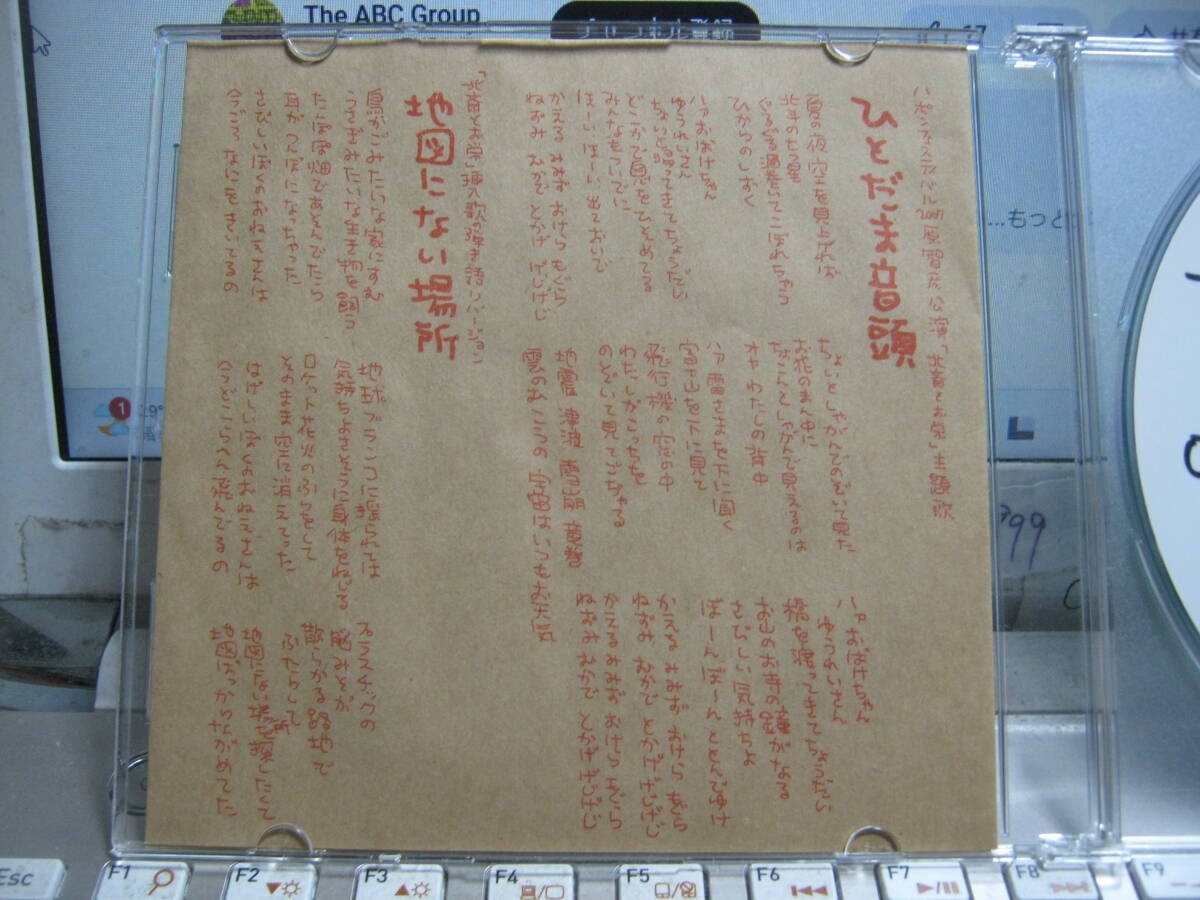 The ABC Group
...もっと
ハポン・フェスティバル 原智彦公演「北斎とお栄」主題歌
ひとだま音頭
夏の夜空を見上げれば
北斗の七つ星
ぐるぐる渦巻いてこぼれちゃう
ひかりのしずく
ハァおばけちゃん
ゆうれいさん
ちょいと寄ってきてちょうだい
どこかで息をひそめてる
みんなもついでに
ほーいほーい出ておいで
かえる みみず おけら もぐら
ねずみ むかで とかげ げじげじ
ちょいとしゃがんでのぞいて見た
お花のまん中に
ちょこんとしゃがんで見えるのは
オヤわたしの背中
ハァ雷さまを下に聞く
富士山を下に見て
飛行機の窓の中
わたしがこっちを
のぞいて見てござる
地震 津波 雪崩 竜巻
雲のむこうの宇宙はいつもお天気
ハァおばけちゃん
ゆうれいさん
橋を渡ってきてちょうだい
お山のお寺の鐘がなる
さびしい気持ちよ
ぼーんぼーんととんでゆけ
かえる みみず おけら もぐら
ねずみ むかで とかげ げじげじ
かえる みみず おけら もぐら
ねずみ むかで とかげ げじげじ
「北斎とお栄」挿入歌の弾き語りバージョン
地図にない場所
鳥かごみたいな家にすむ
うさぎみたいな生き物を飼う
たんぽぽ畑であそんでたら
耳がつんぼになっちゃった
さびしいぼくのおねえさんは
今ごろなにをきいてるの
地球ブランコに揺られては
気持ちよさそうに身体をねじる
ロケット花火のふりをして
そのまま空に消えてった
はげしいぼくのおねえさんは
今どこらへん飛んでるの
プラスチックの
脳みそが
散らかる路地で
ふたりして
地図にない場所を探したくて
地図ばっかりながめてた
1
29°
799
Esc
F1
F2
F3
F4
F5
F6
F7
F8
F9